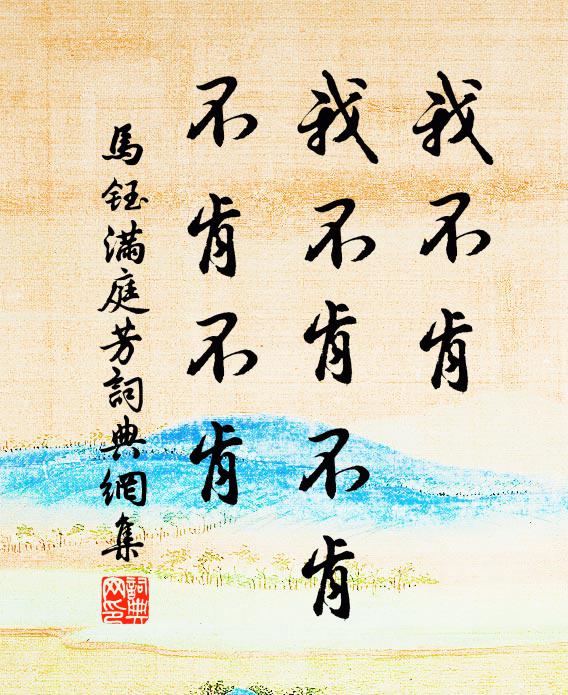 我不肯
我不肯不肯
不肯不肯
馬鈺滿庭芳詞典網集
詞典网印